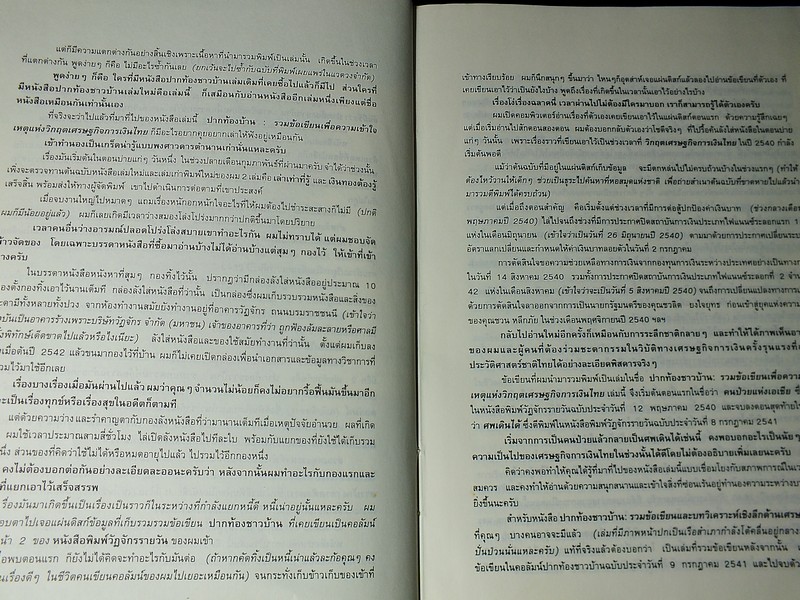 แต่ก็มีความแตกต่างกันอย่างสิ้นเชิงเพราะเนื้อหาที่นำมารวมพิมพ์เป็นเล่มนั้น เกิดขึ้นในช่วงเวลา
ที่แตกต่างกัน พูดง่ายๆ ก็คือ ไม่มีอะไรซ้ำกันเลย (ยกเว้นจะไปซ้ำกับฉบับที่พิมพ์เผยแพร่ในแวดวงจำกัด)
พูดง่ายๆ ก็คือ ใครที่มีหนังสือปากท้องชาวบ้านเล่มเดิมที่เคยซื้อไปแล้วก็มีไป ส่วนใครที่
มีหนังสือปากท้องชาวบ้านเล่มใหม่คือเล่มนี้ ก็เสมือนกับอ่านหนังสืออีกเล่มหนึ่งเพียงแต่ชื่อ
หนังสือเหมือนกันเท่านั้นเอง
ที่จริงจะว่าไปแล้วที่มาที่ไปของหนังสือเล่มนี้ ปากท้องชาวบ้าน : รวมข้อเขียนเพื่อความเข้าใจ
เหตุแห่งวิกฤตเศรษฐกิจการเงินไทย ก็มีอะไรอยากคุยอยากเล่าให้ฟังอยู่เหมือนกัน
เข้าทำนองเป็นเกร็ดน่ารู้แบบพงศาวดารตำนานเก่านั่นแหละครับ
เรื่องมันเริ่มต้นในตอนบ่ายแก่ๆ วันหนึ่ง ในช่วงปลายเดือนกุมภาพันธ์ที่ผ่านมาครับ จำได้ว่าช่วงนั้น
เพิ่งจะตรวจทานต้นฉบับหนังสือเล่มใหม่และเล่มเก่าพิมพ์ใหม่ของผม 2 เล่มคือ เล่าเท่าที่รู้ และ เงินทองต้องรู้
เสร็จสิ้น พร้อมส่งให้ทางผู้จัดพิมพ์ เขาไปดำเนินการต่อตามที่เขาประสงค์
เมื่อจบงานใหญ่ไปหมาดๆ แถมเรื่องหนักอกหนักใจอะไรที่ให้ผมต้องไปชำระสะสางก็ไม่มี (ปกติ
ผมก็มีน้อยอยู่แล้ว) ผมก็เลยเกิดมีเวลาว่างสมองโล่งโปร่งมากกว่าปกติขึ้นมาโดยปริยาย
เวลาคนอื่นว่างอารมณ์ปลอดโปร่งโล่งสบายเขาทำอะไรกัน ผมไม่ทราบได้ แต่ผมชอบจัด
ข้าวจัดของ โดยเฉพาะบรรดาหนังสือที่ซื้อมาอ่านบ้างไม่ได้อ่านบ้างแต่สุมๆ กองไว้ ให้เข้าที่เข้า
ทางครับ
ในบรรดาหนังสือหนังหาที่สุมๆ กองทิ้งไว้นั้น ปรากฏว่ามีกล่องลังใส่หนังสืออยู่ประมาณ 10
เมื่อต้นปี 2542 แล้วขนมากองไว้ที่บ้าน ผมก็ไม่เคยเปิดกล่องเพื่อนำเอกสารและข้อมูลทางวิชาการที่
รวมไว้มาใช้อีกเลย
เรื่องบางเรื่องเมื่อมันผ่านไปแล้ว ผมว่าคุณๆ จำนวนไม่น้อยก็คงไม่อยากรื้อฟื้นมันขึ้นมาอีก
จะเป็นเรื่องทุกข์หรือเรื่องสุขในอดีตก็ตามที
แต่ด้วยความว่าง และรำคาญตากับกองลังหนังสือที่ว่ามานานเต็มทีเมื่อเหตุปัจจัยอำนวย ผลที่เกิด
ผมใช้เวลาประมาณสามสี่ชั่วโมง ไล่เปิดลังหนังสือไปทีละใบ พร้อมกับแยกของที่ยังใช้ได้เก็บรวม
ส่วนของที่คิดว่าใช้ไม่ได้หรือหมดอายุไปแล้ว ไปรวมไว้อีกกองหนึ่ง
คงไม่ต้องบอกต่อกันอย่างละเอียดละออนะครับว่า หลังจากนั้นผมทำอะไรกับกองแรกและ
ที่แยกเอาไว้เสร็จสรรพ
เรื่องมันมาเกิดขึ้นเป็นเรื่องเป็นราวก็ในระหว่างที่กำลังแยกหนี้ดี หนี้เน่าอยู่นั่นแหละครับ ผม
ตาไปเจอแผ่นดิสก์ข้อมูลที่เก็บรวบรวมข้อเขียน ปากท้องชาวบ้าน ที่เคยเขียนเป็นคอลัมน์
หน้า 2 ของ หนังสือพิมพ์วัฏจักรรายวัน ของผมเข้า
พบตอนแรก ก็ยังไม่ได้คิดจะทำอะไรกับมันต่อ (ถ้าหากคิดทิ้งเป็นหนี้เน่าแล้วละก้อคุณๆ คง
เรื่องดีๆ ในชีวิตคนเขียนคอลัมน์ของผมไปเยอะเหมือนกัน) จนกระทั่งเก็บข้าวเก็บของเข้าที่
เข้าทางเรียบร้อย ผมก็นึกสนุกๆ ขึ้นมาว่า ไหนๆก็อุตส่าห์เจอแผ่นดิสก์แล้วลองไปอ่านข้อเขียนที่ตัวเอง ที่
เคยเขียนเอาไว้ว่าเป็นยังไงบ้าง พูดถึงเรื่องที่เกิดขึ้นในเวลานั้นเอาไว้อย่างไรบ้าง
เรื่องโง่เรื่องฉลาดนี่ เวลาผ่านไปไม่ต้องมีใครมาบอก เราก็สามารถรู้ได้ด้วยตัวเองครับ
ผมเปิดคอมพิวเตอร์อ่านเรื่องที่ตัวเองเคยเขียนเอาไว้ในแผ่นดิสก์ตอนแรก ด้วยความรู้สึกเฉยๆ
แต่เมื่อเริ่มอ่านไปสักตอนสองตอน ผมต้องบอกกลับตัวเองว่าโชคดีจริงๆ ที่ไปรื้อค้นลังใส่หนังสือในตอนบ่าย
แก่ๆ วันนั้น เพราะเรื่องราวที่เขียนเอาไว้เป็นช่วงเวลาที่ วิกฤตเศรษฐกิจการเงินไทย ในปี 2540 กำลัง
เริ่มต้นพอดี
แม้ว่าต้นฉบับที่มีอยู่ในแผ่นดิสก์เก็บข้อมูล จะมีตกหล่นไปไม่ครบถ้วนบ้างในช่วงแรกๆ (ทำให้
ต้องไหว้วานให้เด็กๆ ช่วยเป็นธุระไปค้นหาที่หอสมุดแห่งชาติ เพื่อถ่ายสำเนาต้นฉบับที่ขาดหายไปแล้วนำ
มารวมตีพิมพ์ได้ครบถ้วน)
แต่เมื่อถึงตอนสำคัญ คือเริ่มตั้งแต่ช่วงเวลาที่มีการต่อสู้ปกป้องค่าเงินบาท (ช่วงกลางเดือน
พฤษภาคมปี 2540) ไล่ไปจนถึงช่วงที่มีการประกาศปิดสถาบันการเงินประเภทไฟแนนซ์ระลอกแรก 1
แห่งในเดือนมิถุนายน (เข้าใจว่าเป็นวันที่ 26 มิถุนายนปี 2540) ตามมาด้วยการประกาศเปลี่ยนระบ
อัตราแลกเปลี่ยนและกำหนดให้ค่าเงินบาทลอยตัวในวันที่ 2 กรกฎาคม
การตัดสินใจขอความช่วยเหลือทางการเงินจากกองทุนการเงินระหว่างประเทศอย่างเป็นทางก
ในวันที่ 14 สิงหาคม 2540 รวมทั้งการประกาศปิดสถาบันการเงินประเภทไฟแนนซ์ระลอกที่ 2 จำ
42 แห่งในเดือนสิงหาคม (เข้าใจว่าจะเป็นวันที่ 5 สิงหาคมปี 2540) จนถึงการเปลี่ยนแปลงทางการ
ด้วยการตัดสินใจลาออกจากการเป็นนายกรัฐมนตรีของคุณชวลิต ยงใจยุทธ ก่อนเข้าสู่ยุคแห่งความ
ของคุณชวน หลีกภัย ในช่วงเดือนพฤศจิกายนปี 2540 ฯลฯ
กลับไปอ่านใหม่อีกครั้งก็เหมือนกับการระลึกชาติกลายๆ และทำให้ได้ภาพเห็นอา
ของผมและผู้คนที่ต้องร่วมชะตากรรมในวิบัติทางเศรษฐกิจการเงินครั้งรุนแรงที่
ประวัติศาสตร์ชาติไทยได้อย่างละเอียดพิสดารจริงๆ
ข้อเขียนที่ผมนำมารวมพิมพ์เป็นเล่มในชื่อ ปากท้องชาวบ้าน: รวมข้อเขียนเพื่อความ
เหตุแห่งวิกฤตเศรษฐกิจการเงินไทย เล่มนี้ จึงเริ่มต้นตอนแรกในชื่อว่า คนป่วยแห่งเอเชีย ซึ่
ในหนังสือพิมพ์วัฏจักรรายวันฉบับประจำวันที่ 12 พฤษภาคม 2540 และจบลงตอนสุดท้ายใ
ว่า ศพเดินได้ ซึ่งตีพิมพ์ในหนังสือพิมพ์วัฏจักรรายวันฉบับประจำวันที่ 8 กรกฎาคม 2541
เริ่มจากการเป็นคนป่วยแล้วกลายเป็นศพเดินได้เช่นนี้ คงพอบอกอะไรเป็นนัยๆ
ความเป็นไปของเศรษฐกิจการเงินไทยในช่วงนั้นได้ดีโดยไม่ต้องอธิบายเพิ่มเลยนะครับ
คิดว่าคงพอทำให้คุณได้รู้ที่มาที่ไปของหนังสือเล่มนี้แบบเชื่อมโยงกับสภาพการณ์ในเว
สมควร และคงทำให้อ่านด้วยความสนุกสนานและเข้าใจสิ่งที่ซ่อนเร้นอยู่ทำนองความระหว่างบ
ยิ่งขึ้นนะครับ
สำหรับหนังสือ ปากท้องชาวบ้าน: รวมข้อเขียนและบทวิเคราะห์เชิงลึกด้านเศรษ
ที่คุณๆ บางคนอาจจะมีแล้ว (เล่มที่มีภาพหน้าปกเป็นเรือสำเภากำลังโต้คลื่นอยู่กลาง
ปั่นป่วนนั่นแหละครับ) แท้ที่จริงแล้วต้องบอกว่า เป็นเล่มที่รวมข้อเขียนหลังจากนั้น
ข้อเขียนในคอลัมน์ปากท้องชาวบ้านฉบับประจำวันที่ 9 กรกฎาคม 2541 และไปจบตัว